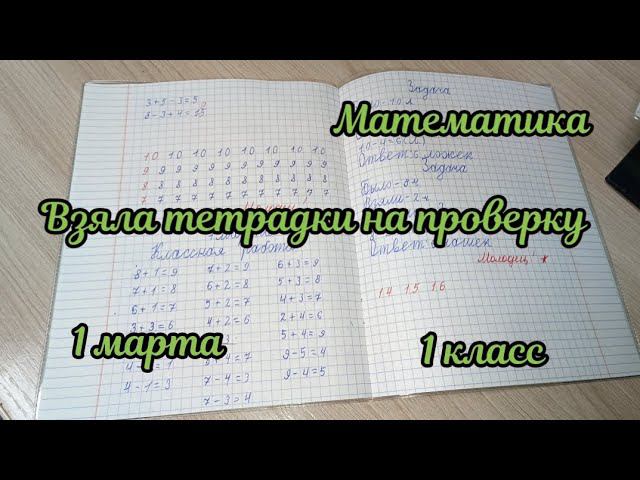 3+5-3=5
8-3+4=15
10 10 10 10 10 10 10 10
9 9 9 9 9 9 9 9 9
8 8 8 8 8 8 8 8 8
7 7 7 7 7 7 7 7 7
Классная работа
8+1=9 7+2=9 6+3=9
7+1=8 6+2=8 5+3=8
6+1=7 5+2=7 4+3=7
3+3=6 4+2=6 2+4=6
5+4=9
7-4=3 9-5=4
4-1=3 9-4=5
7-3=4
Задача
10-4=6
Ответ: 6 ложек
Задача
Было-
Взяли-2
Ответ:
Молодец
14 15 16
Математика
Взяла тетрадки на проверку
1 марта
1 класс